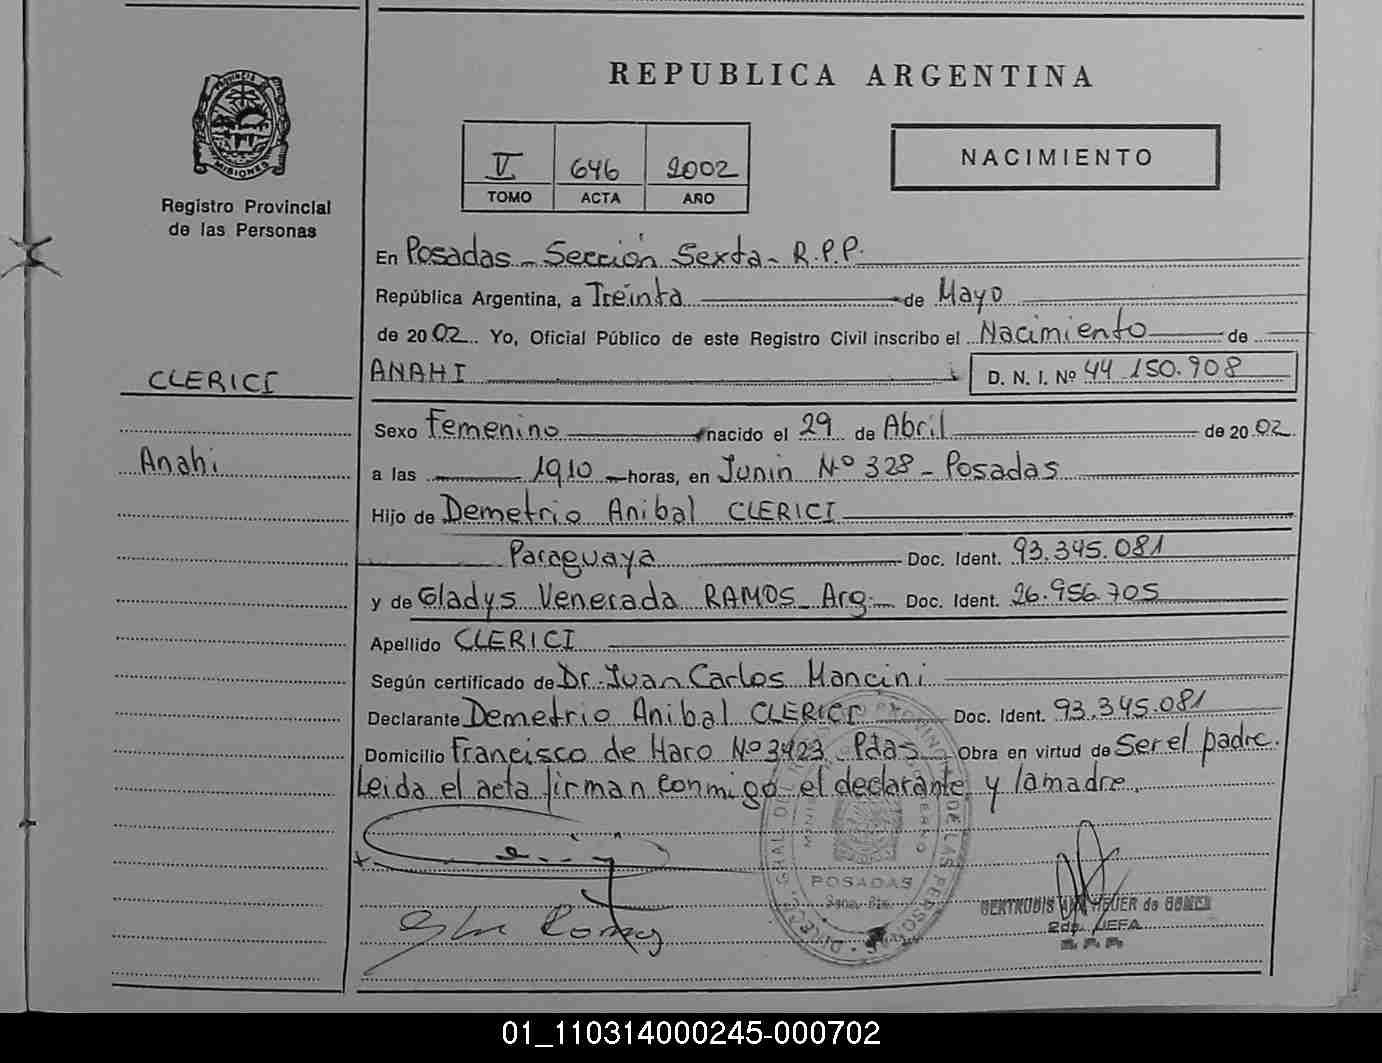 REPUBLICA ARGENTINA
PROVINCIA DE MISIONES
Registro Provincial
de las Personas
V 646 2002
TOMO ACTA AÑO
NACIMIENTO
En Posadas - Sección Sexta - R.P.P.
República Argentina, a Treinta de Mayo
de 2002 Yo, Oficial Público de este Registro Civil inscribo el Nacimiento de
CLERICI
ANAHI D. N. I. Nº 44 150.908
Sexo Femenino nacido el 29 de Abril de 2002
Anahi
a las 1910 horas, en Junin Nº 328 - Posadas
Hijo de Demetrio Anibal CLERICI
Paraguaya Doc. Ident. 93.345.081
y de Gladys Venerada RAMOS Arg. Doc. Ident. 26.956.705
Apellido CLERICI
Según certificado de Dr. Juan Carlos Mancini
Declarante Demetrio Anibal CLERICI Doc. Ident. 93.345.081
Domicilio Francisco de Haro Nº 3423 Pdas Obra en virtud de Ser el padre.
Leida el acta firman conmigo el declarante y la madre.
POSADAS
GERTRUDIS de GOMEZ
2da. JEFA
R.P.P.
01_110314000245-000702